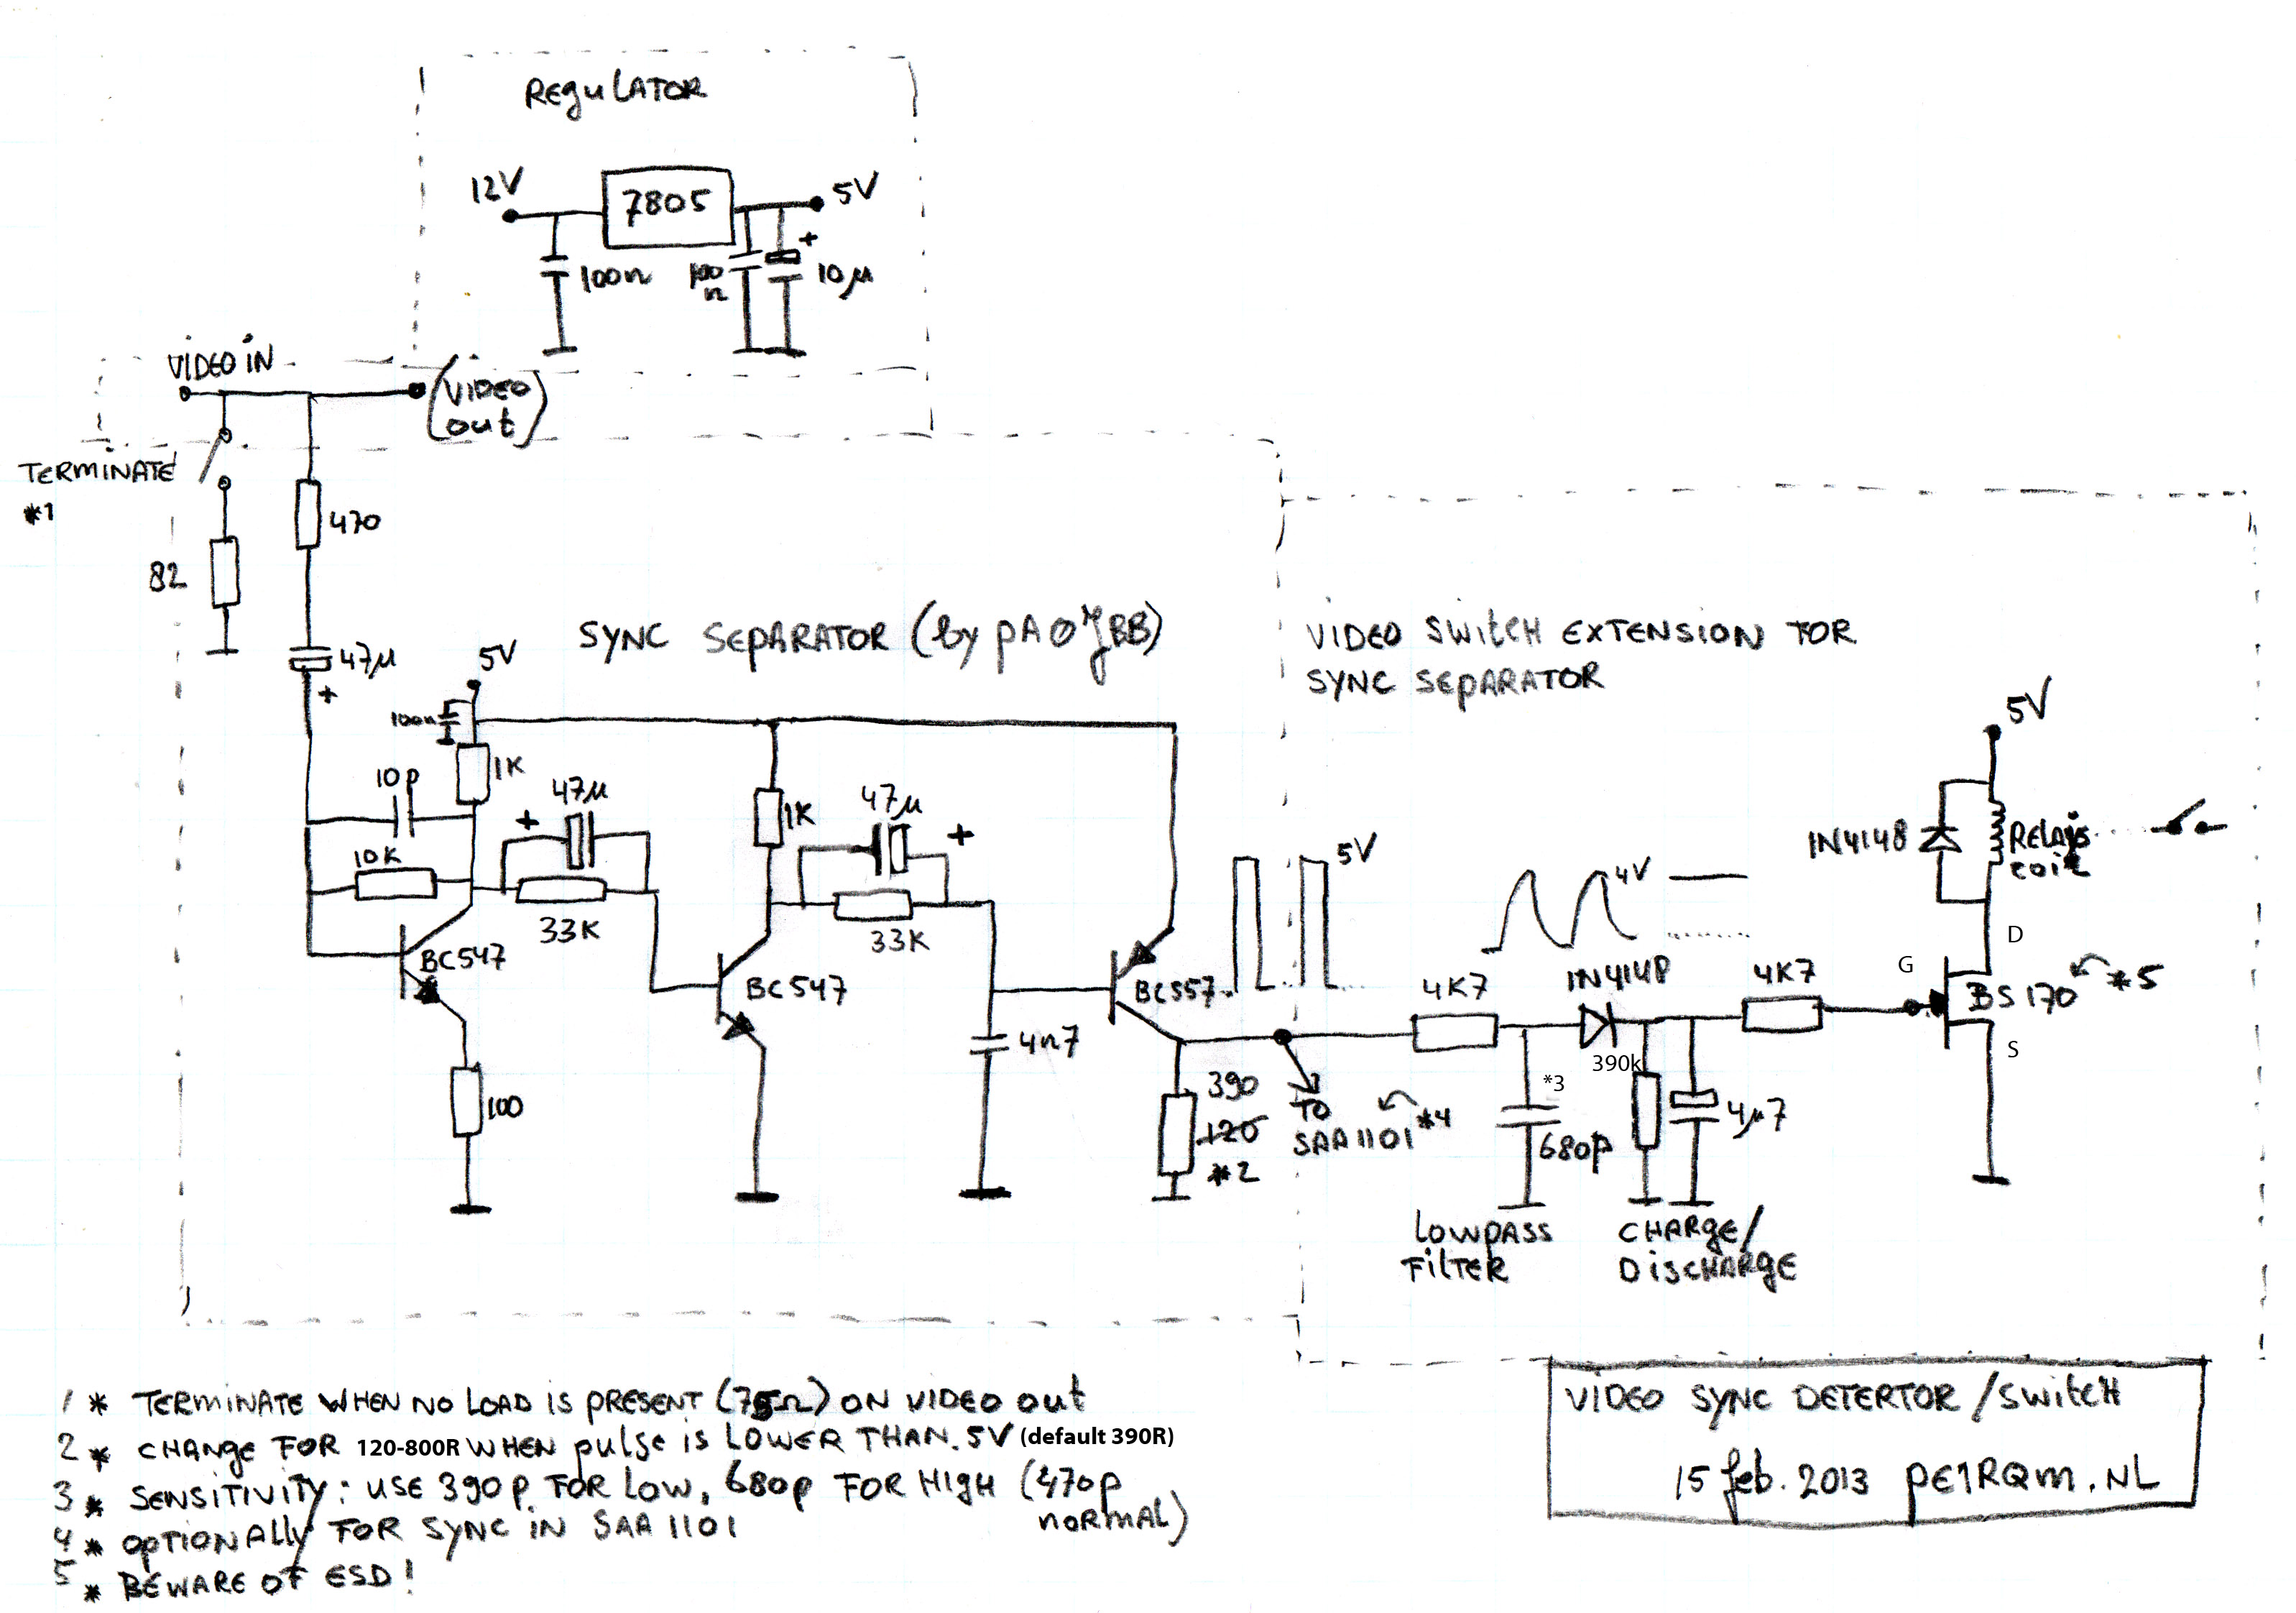 REGULATOR
12V
7805
5V
100n
100
n
+
10µ
VIDEO IN
(VIDEO
out)
TERMINATE
*1
82
470
47µ
+
SYNC SEPARATOR (by PA0JBB)
5V
100n
1K
10p
10K
+
47µ
33K
BC547
100
1K
47µ
+
33K
BC547
4n7
BC557
5V
390
120
*2
TO
SAA1101
*4
VIDEO SWITCH EXTENSION FOR
SYNC SEPARATOR
4V
4K7
1N4148
*3
680p
390k
4µ7
4K7
LOWPASS
FILTER
CHARGE/
DISCHARGE
5V
1N4148
RELAIS
COIL
D
G
BS170
*5
S
1 * TERMINATE WHEN NO LOAD IS PRESENT (75Ω) ON VIDEO OUT
2 * CHANGE FOR 120-800R WHEN pulse is LOWER THAN. 5V (default 390R)
3 * SENSITIVITY: USE 390p FOR LOW, 680p FOR HIGH (470p
NORMAL)
4 * OPTIONALLY FOR SYNC IN SAA1101
5 * BEWARE OF ESD!
VIDEO SYNC DETERTOR / SWITCH
15 feb. 2013 PE1RQM.NL